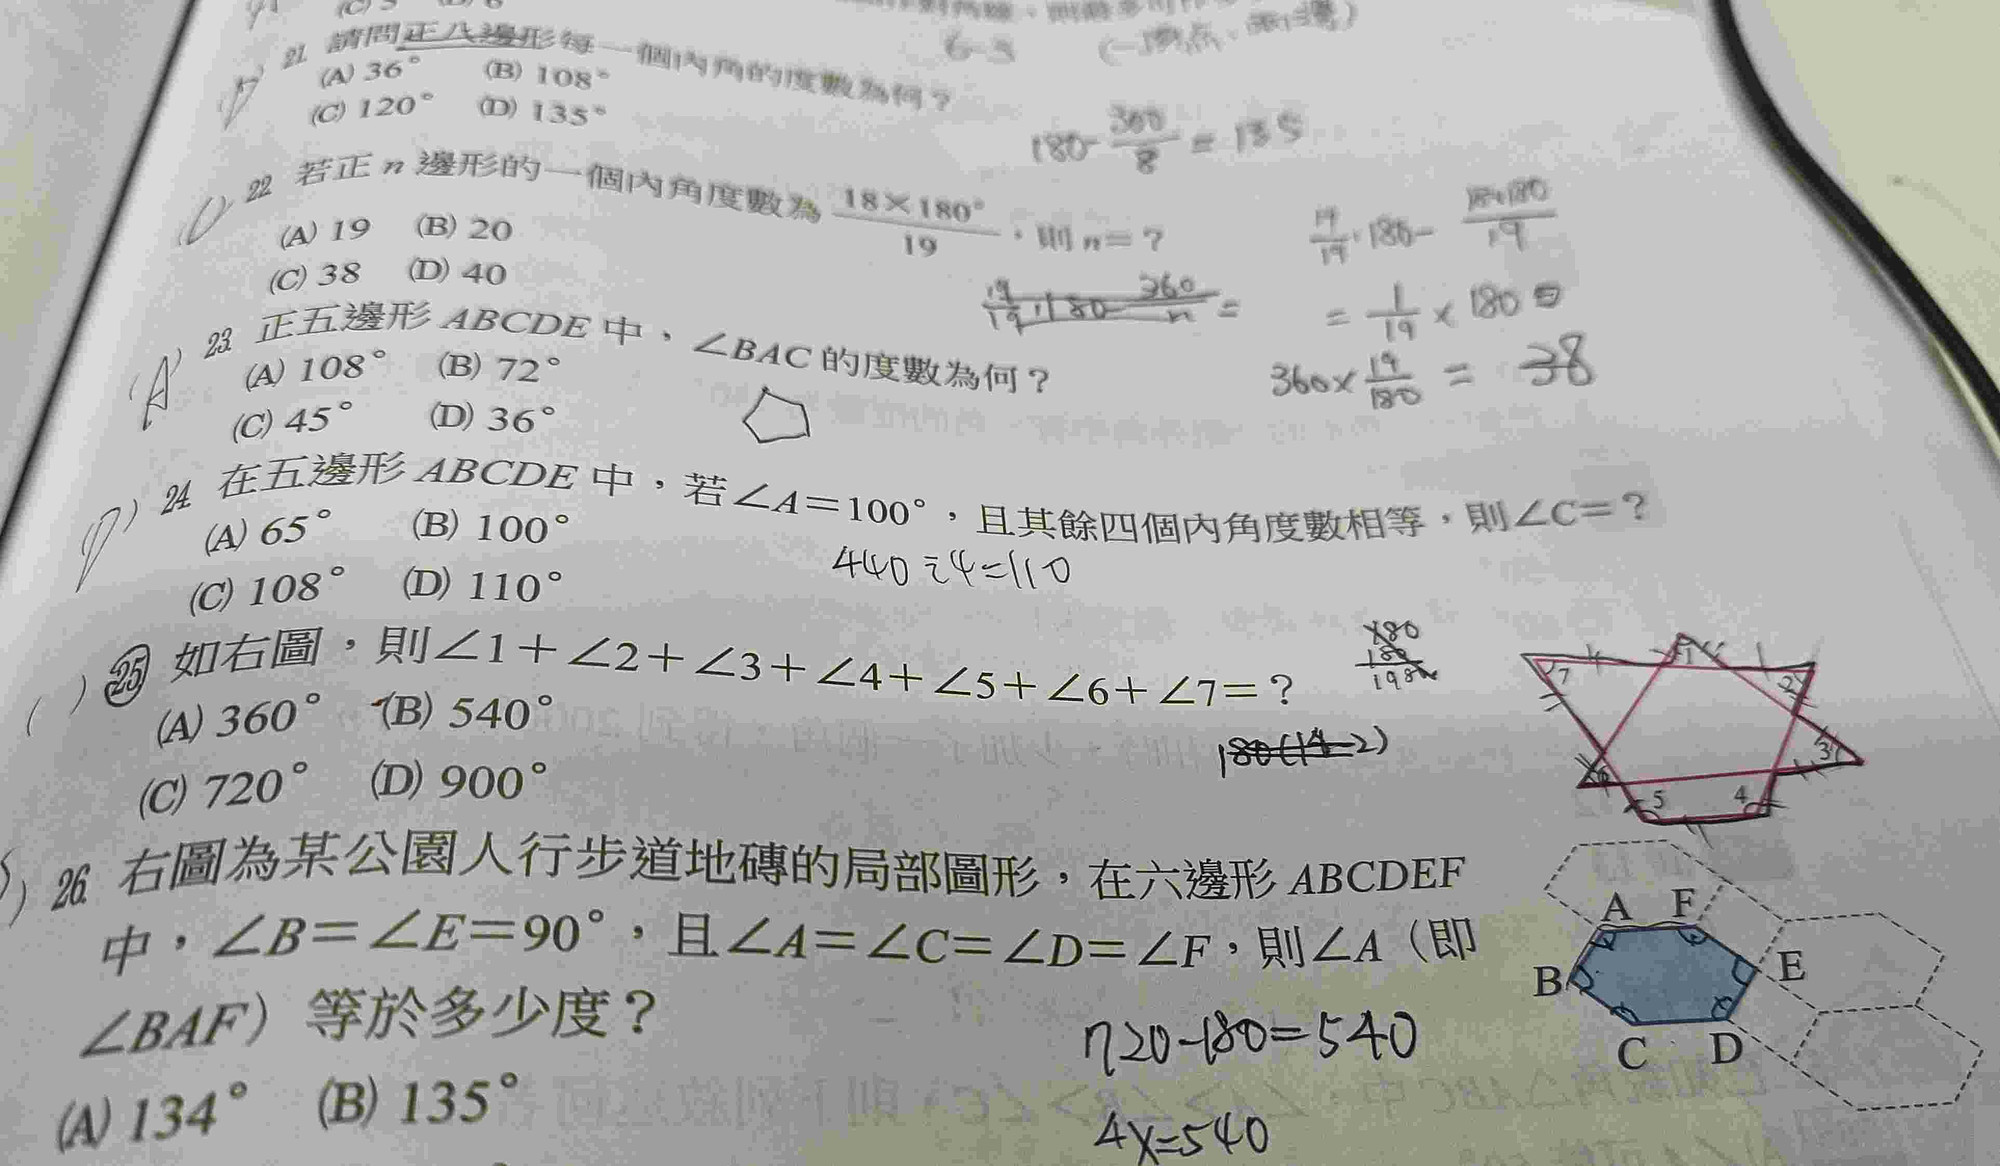 21. 請問正八邊形每一個內角的度數為何？
(A) 36° (B) 108°
(C) 120° (D) 135°
180- 360/8 = 135
22. 若正 n 邊形的一個內角度數為 18×180°/19，則 n=？
(A) 19 (B) 20
(C) 38 (D) 40
= 1/19 × 180
360× 19/180 = 38
23. 正五邊形 ABCDE 中，∠BAC 的度數為何？
(A) 108° (B) 72°
(C) 45° (D) 36°
24. 在五邊形 ABCDE 中，若∠A=100°，且其餘四個內角度數相等，則∠C=？
(A) 65° (B) 100°
(C) 108° (D) 110°
440÷4=110
( ) 25. 如右圖，則∠1+∠2+∠3+∠4+∠5+∠6+∠7=？
(A) 360° (B) 540°
(C) 720° (D) 900°
1
2
3
4
5
6
7
26. 右圖為某公園人行步道地磚的局部圖形，在六邊形 ABCDEF
中，∠B=∠E=90°，且∠A=∠C=∠D=∠F，則∠A（即
∠BAF）等於多少度？
(A) 134° (B) 135°
720-180=540
4x=540
A F
B E
C D